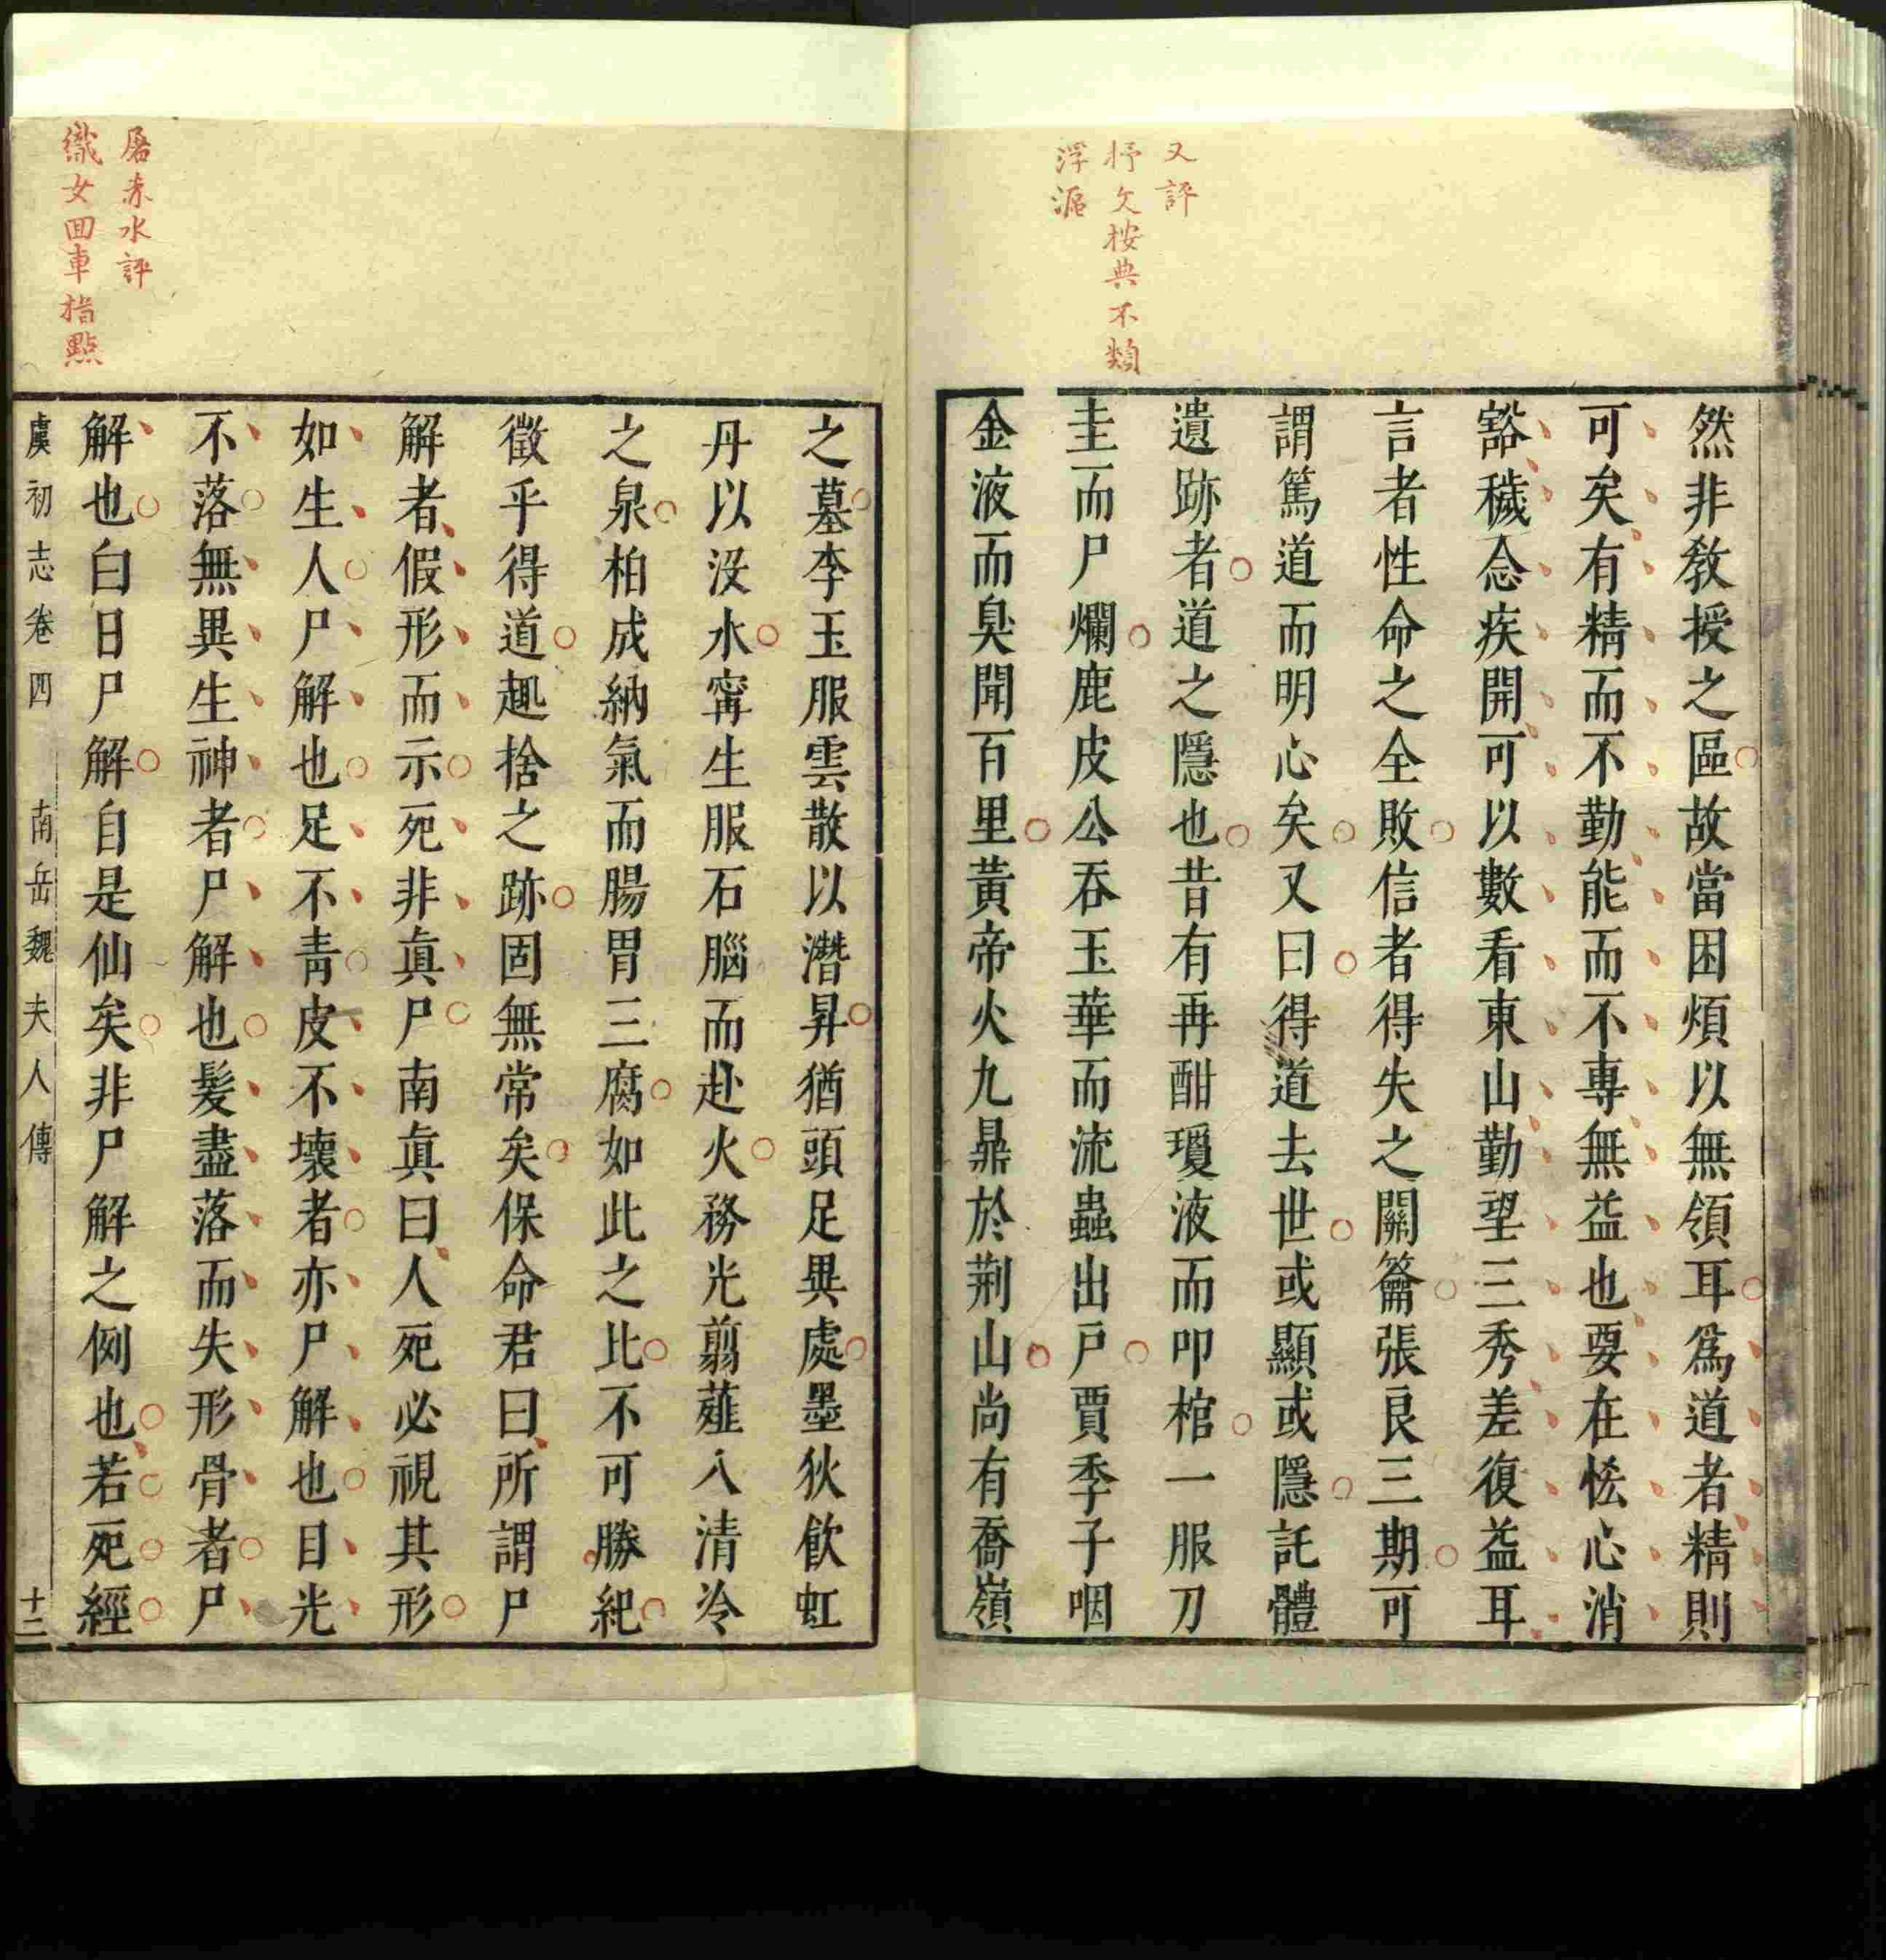 又評
抒文按典不類
浮漚
然非教授之區故當困煩以無領耳為道者精則
可矣有精而不勤能而不專無益也要在恡心消
豁穢念疾開可以數看東山勤望三秀差復益耳
言者性命之全敗信者得失之關籥張良三期可
謂篤道而明心矣又曰得道去世或顯或隱託體
遺跡者道之隱也昔有再酣瓊液而叩棺一服刀
圭而尸爛鹿皮公吞玉華而流蟲出戸賈季子咽
金液而臭聞百里黃帝火九鼎於荆山尚有喬嶺
屠赤水評
織女回車指點
之墓李玉服雲散以潛昇猶頭足異處墨狄飲虹
丹以沒水甯生服石腦而赴火務光翦薤入清冷
之泉柏成納氣而腸胃三腐如此之比不可勝紀
徵乎得道趣捨之跡固無常矣保命君曰所謂尸
解者假形而示死非眞尸南眞曰人死必視其形
如生人尸解也足不青皮不壞者亦尸解也目光
不落無異生神者尸解也髮盡落而失形骨者尸
解也白日尸解自是仙矣非尸解之例也若死經
虞初志卷四 南岳魏夫人傳 十二